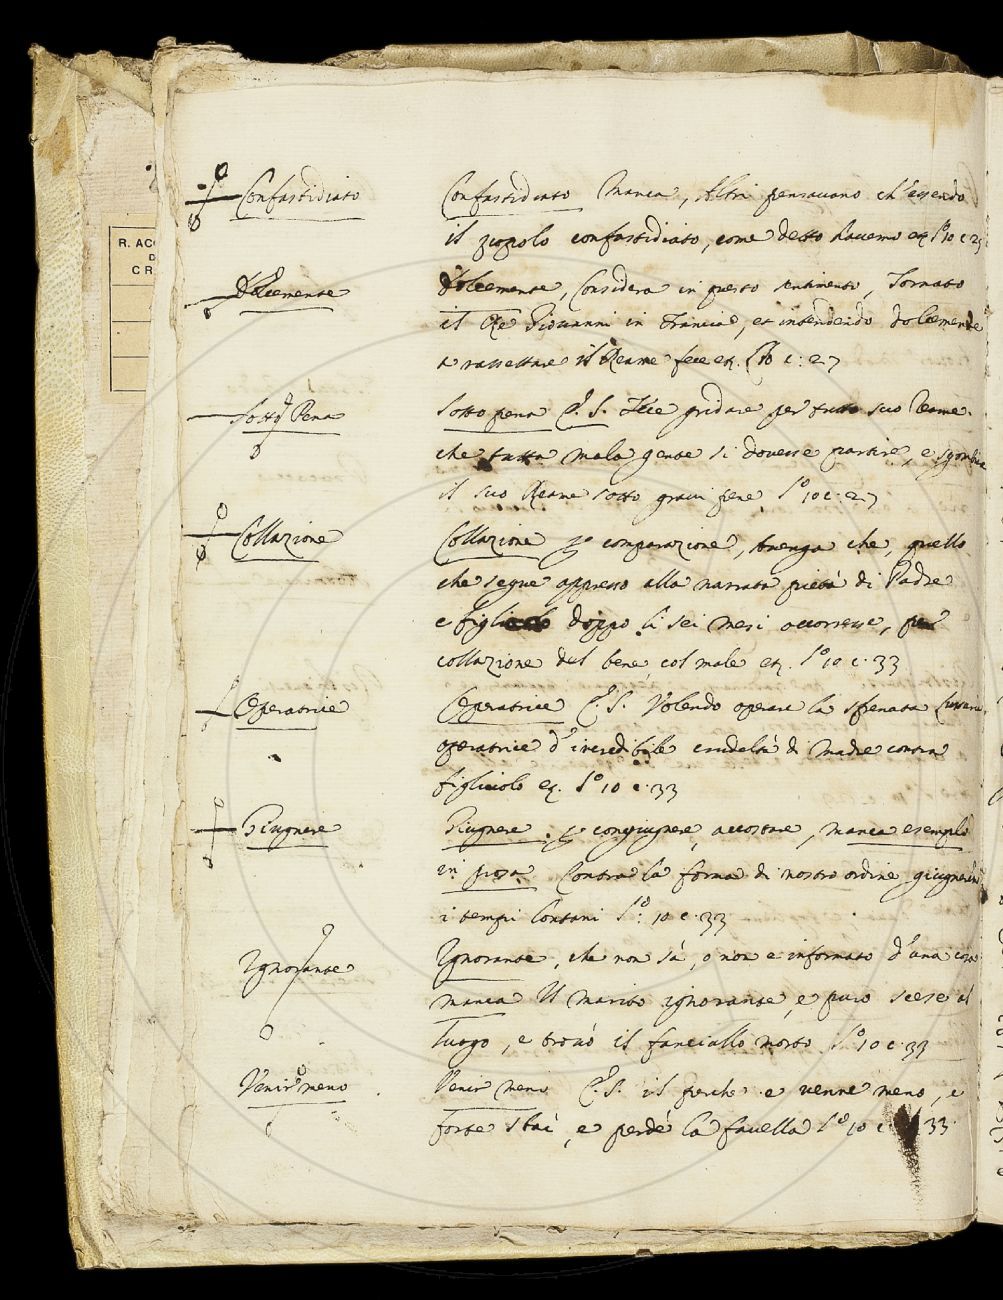 R. AC
D
CR
Confastidiato
Confastidiato Manca, Altri pensavano ch'essendo
il popolo confastidiato, come detto havemo l.o 10 c. 25
Dolcemente
Dolcemente, Considera in questo sentimento, Tornato
il Re Giovanni in Francia, et intendendo dolcemente
a rassettare il Reame fece l.o 10 c. 27
Sotto Pena
Sotto pena C. S. Fece gridare per tutto suo Reame.
che tutta mala gente si dovesse partire, e sgombra
il suo Reame sotto gravi pene, l.o 10 c. 27
Collazione
Collazione p. comparazione, Avenga che, quello
che segue appresso alla narrata pietà di Padre
e doppo li sei mesi occorresse, per
collazione del bene col male l.o 10 c. 33
Operatrice
Operatrice C. S. Volendo operare la sfrenata lussuria
operatrice d'incredibile crudeltà di Madre contra
figliuolo l.o 10 c. 33
Giugnere
Giugnere. p. congiugnere, accostare, manca esemplo
in prosa Contra la forma di nostro ordine giugnendo
i tempi lontani l.o 10 c. 33
Ignorante
Ignorante, che non sà, o non è informato d'una cosa
manca Il marito ignorante, e puro scese al
luogo, e trovò il fanciullo morto l.o 10 c. 33
Venir meno
Venir meno C. S. il perche e venne meno, e
forte stai, e perdé la favella l.o 10 c 33